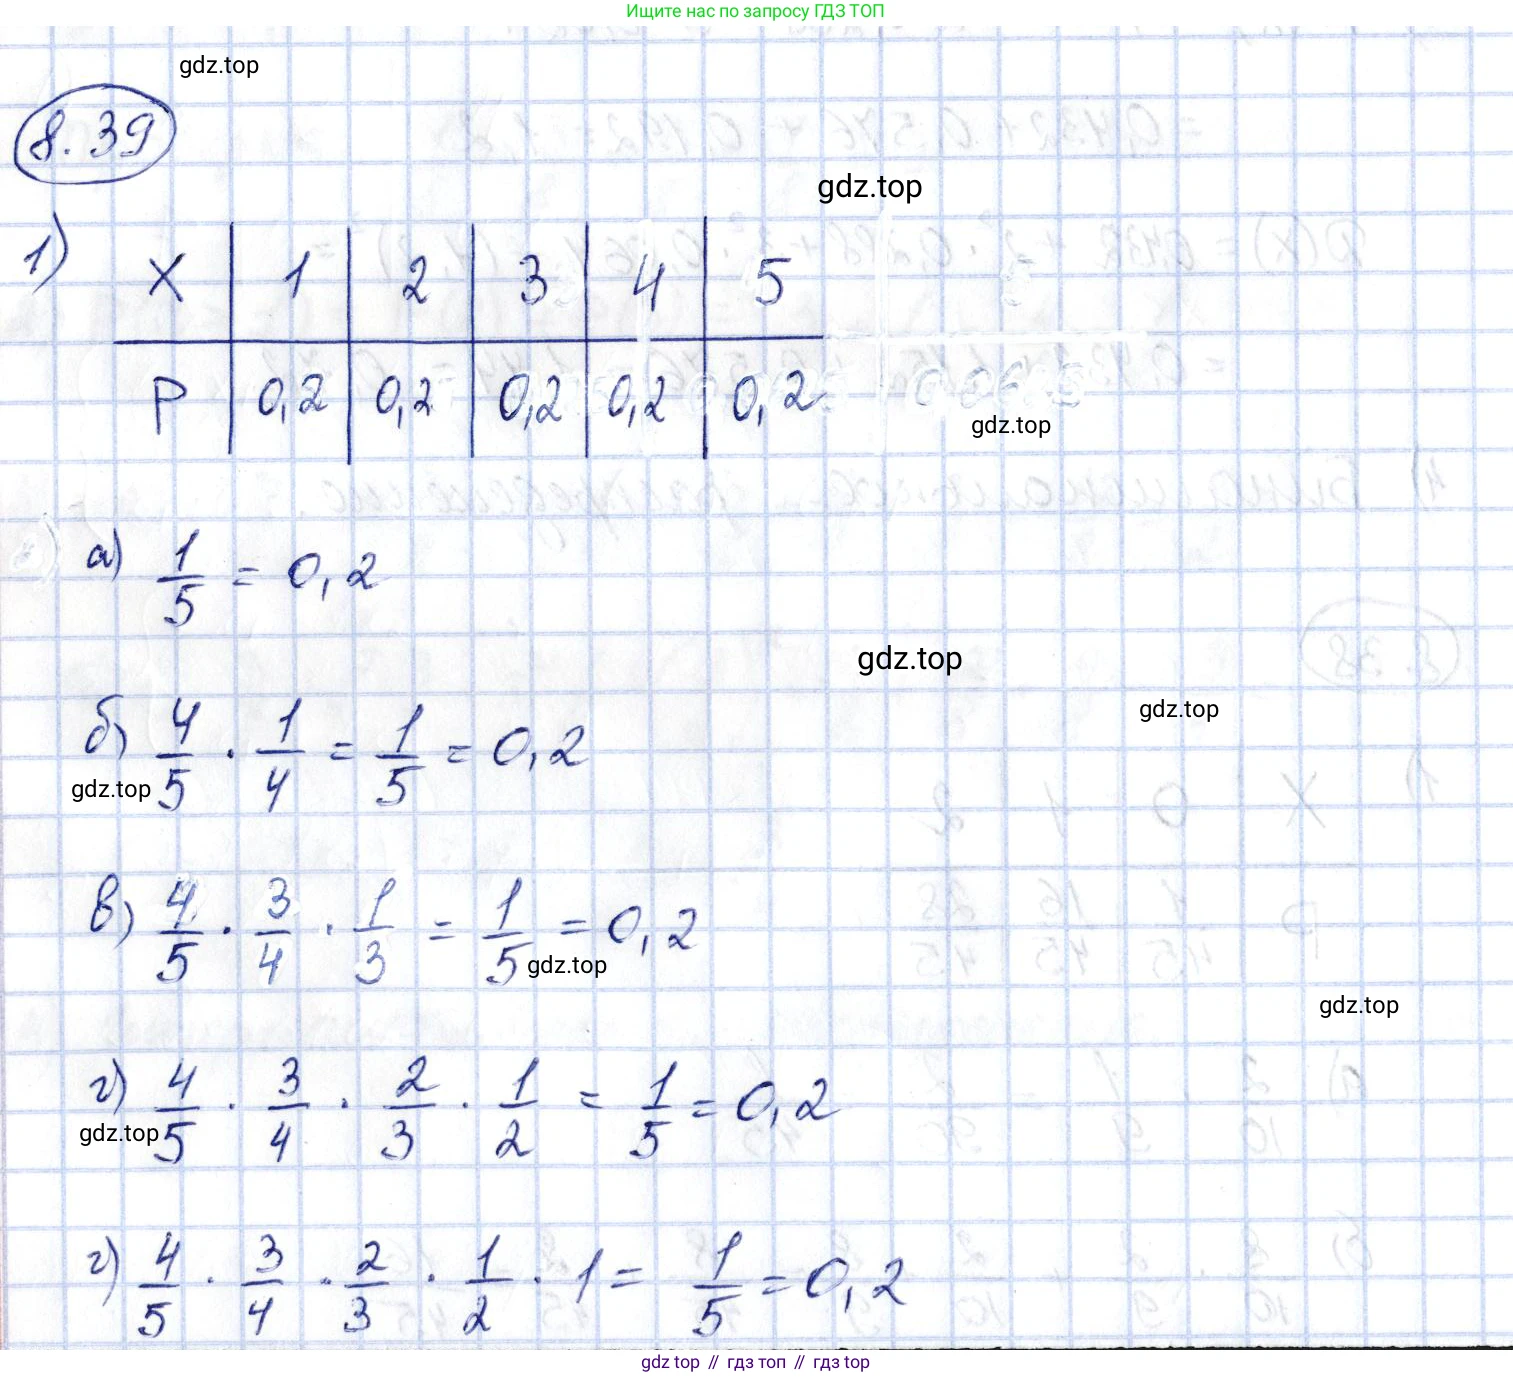 Ищите нас по запросу ГДЗ ТОП
gdz.top
8.39
gdz.top
1) X | 1 | 2 | 3 | 4 | 5
P | 0,2 | 0,2 | 0,2 | 0,2 | 0,2
gdz.top
а) 1/5 = 0,2
gdz.top
gdz.top
б) 4/5 · 1/4 = 1/5 = 0,2
gdz.top
в) 4/5 · 3/4 · 1/3 = 1/5 = 0,2
gdz.top
gdz.top
г) 4/5 · 3/4 · 2/3 · 1/2 = 1/5 = 0,2
gdz.top
г) 4/5 · 3/4 · 2/3 · 1/2 · 1 = 1/5 = 0,2
gdz top // гдз топ // гдз top